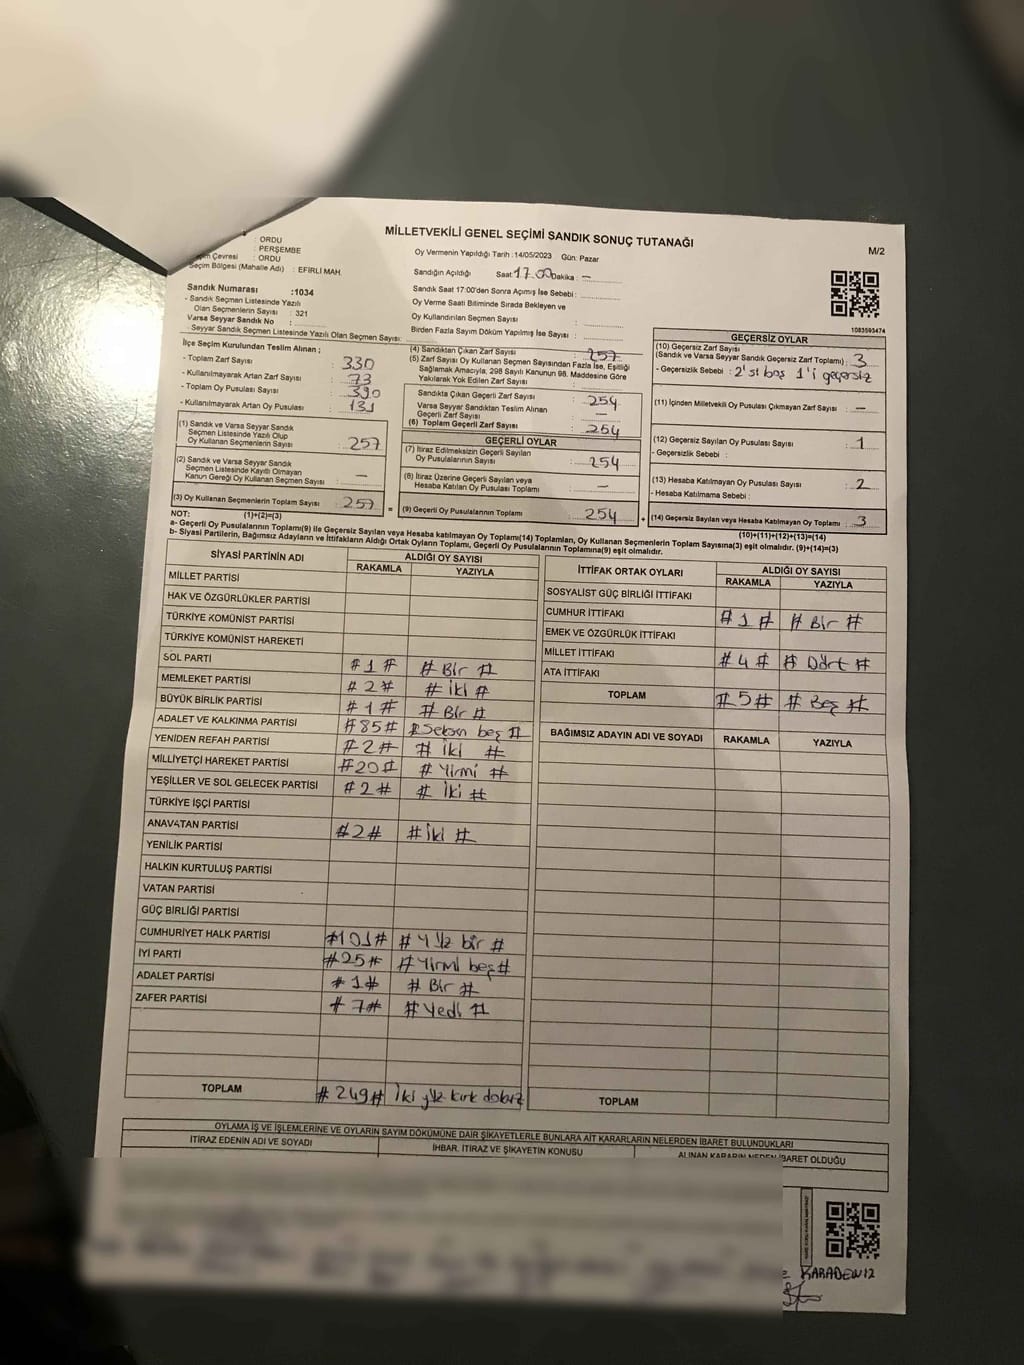 MİLLETVEKİLİ GENEL SEÇİMİ SANDIK SONUÇ TUTANAĞI
M/2
: ORDU
: PERŞEMBE
Çevresi : ORDU
Seçim Bölgesi (Mahalle Adı) : EFİRLİ MAH.
Sandık Numarası :1034
- Sandık Seçmen Listesinde Yazılı
Olan Seçmenlerin Sayısı : 321
Varsa Seyyar Sandık No :
- Seyyar Sandık Seçmen Listesinde Yazılı Olan Seçmen Sayısı:
Oy Vermenin Yapıldığı Tarih :14/05/2023 Gün: Pazar
Sandığın Açıldığı Saat:17.00 Dakika : —
Sandık Saat 17:00'den Sonra Açımış İse Sebebi :
Oy Verme Saati Bitiminde Sırada Bekleyen ve
Oy Kullandırılan Seçmen Sayısı :
Birden Fazla Sayım Döküm Yapılmış İse Sayısı :
1083593474
İlçe Seçim Kurulundan Teslim Alınan ;
- Toplam Zarf Sayısı : 330
- Kullanılmayarak Artan Zarf Sayısı : 73
- Toplam Oy Pusulası Sayısı : 390
- Kullanılmayarak Artan Oy Pusulası : 131
(1) Sandık ve Varsa Seyyar Sandık
Seçmen Listesinde Yazılı Olup
Oy Kullanan Seçmenlerin Sayısı : 257
(2) Sandık ve Varsa Seyyar Sandık
Seçmen Listesinde Kayıtlı Olmayan
Kanun Gereği Oy Kullanan Seçmen Sayısı : —
(3) Oy Kullanan Seçmenlerin Toplam Sayısı : 257
(4) Sandıktan Çıkan Zarf Sayısı : 257
(5) Zarf Sayısı Oy Kullanan Seçmen Sayısından Fazla İse, Eşitliği
Sağlamak Amacıyla, 298 Sayılı Kanunun 98. Maddesine Göre
Yakılarak Yok Edilen Zarf Sayısı :
Sandıkta Çıkan Geçerli Zarf Sayısı : 254
Varsa Seyyar Sandıktan Teslim Alınan
Geçerli Zarf Sayısı : —
(6) Toplam Geçerli Zarf Sayısı : 254
GEÇERLİ OYLAR
(7) İtiraz Edilmeksizin Geçerli Sayılan
Oy Pusulalarının Sayısı : 254
(8) İtiraz Üzerine Geçerli Sayılan veya
Hesaba Katılan Oy Pusulası Toplamı : —
= (9) Geçerli Oy Pusulalarının Toplamı : 254
GEÇERSİZ OYLAR
(10) Geçersiz Zarf Sayısı
(Sandık ve Varsa Seyyar Sandık Geçersiz Zarf Toplamı) : 3
- Geçersizlik Sebebi : 2'si boş 1'i geçersiz
(11) İçinden Milletvekili Oy Pusulası Çıkmayan Zarf Sayısı : —
(12) Geçersiz Sayılan Oy Pusulası Sayısı : 1
- Geçersizlik Sebebi :
(13) Hesaba Katılmayan Oy Pusulası Sayısı : 2
- Hesaba Katılmama Sebebi :
+ (14) Geçersiz Sayılan veya Hesaba Katılmayan Oy Toplamı : 3
NOT: (1)+(2)=(3)
(10)+(11)+(12)+(13)=(14)
a- Geçerli Oy Pusulalarının Toplamı(9) ile Geçersiz Sayılan veya Hesaba katılmayan Oy Toplamı(14) Toplamları, Oy Kullanan Seçmenlerin Toplam Sayısına(3) eşit olmalıdır. (9)+(14)=(3)
b- Siyasi Partilerin, Bağımsız Adayların ve İttifakların Aldığı Ortak Oyların Toplamı, Geçerli Oy Pusulalarının Toplamına(9) eşit olmalıdır.
SİYASİ PARTİNİN ADI ALDIĞI OY SAYISI
RAKAMLA YAZIYLA
MİLLET PARTİSİ
HAK VE ÖZGÜRLÜKLER PARTİSİ
TÜRKİYE KOMÜNİST PARTİSİ
TÜRKİYE KOMÜNİST HAREKETİ
SOL PARTİ #1# #Bir#
MEMLEKET PARTİSİ #2# #İki#
BÜYÜK BİRLİK PARTİSİ #1# #Bir#
ADALET VE KALKINMA PARTİSİ #85# #Seksen beş#
YENİDEN REFAH PARTİSİ #2# #İki#
MİLLİYETÇİ HAREKET PARTİSİ #20# #Yirmi#
YEŞİLLER VE SOL GELECEK PARTİSİ #2# #İki#
TÜRKİYE İŞÇİ PARTİSİ
ANAVATAN PARTİSİ #2# #İki#
YENİLİK PARTİSİ
HALKIN KURTULUŞ PARTİSİ
VATAN PARTİSİ
GÜÇ BİRLİĞİ PARTİSİ
CUMHURİYET HALK PARTİSİ #101# #Yüz bir#
İYİ PARTİ #25# #Yirmi beş#
ADALET PARTİSİ #1# #Bir#
ZAFER PARTİSİ #7# #Yedi#
TOPLAM #249# İki yüz kırk dokuz
İTTİFAK ORTAK OYLARI ALDIĞI OY SAYISI
RAKAMLA YAZIYLA
SOSYALİST GÜÇ BİRLİĞİ İTTİFAKI
CUMHUR İTTİFAKI #1# #Bir#
EMEK VE ÖZGÜRLÜK İTTİFAKI
MİLLET İTTİFAKI #4# #Dört#
ATA İTTİFAKI
TOPLAM #5# #Beş#
BAĞIMSIZ ADAYIN ADI VE SOYADI RAKAMLA YAZIYLA
TOPLAM
OYLAMA İŞ VE İŞLEMLERİNE VE OYLARIN SAYIM DÖKÜMÜNE DAİR ŞİKAYETLERLE BUNLARA AİT KARARLARIN NELERDEN İBARET BULUNDUKLARI
İTİRAZ EDENİN ADI VE SOYADI İHBAR, İTİRAZ VE ŞİKAYETİN KONUSU ALINAN KARARIN NEDEN İBARET OLDUĞU
KARADENİZ